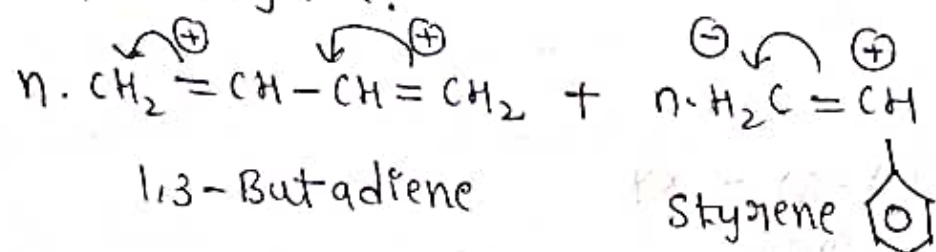 ⊕ ⊕ ⊖ ⊕
n. CH₂ = CH – CH = CH₂ + n. H₂C = CH
1,3-Butadiene Styrene